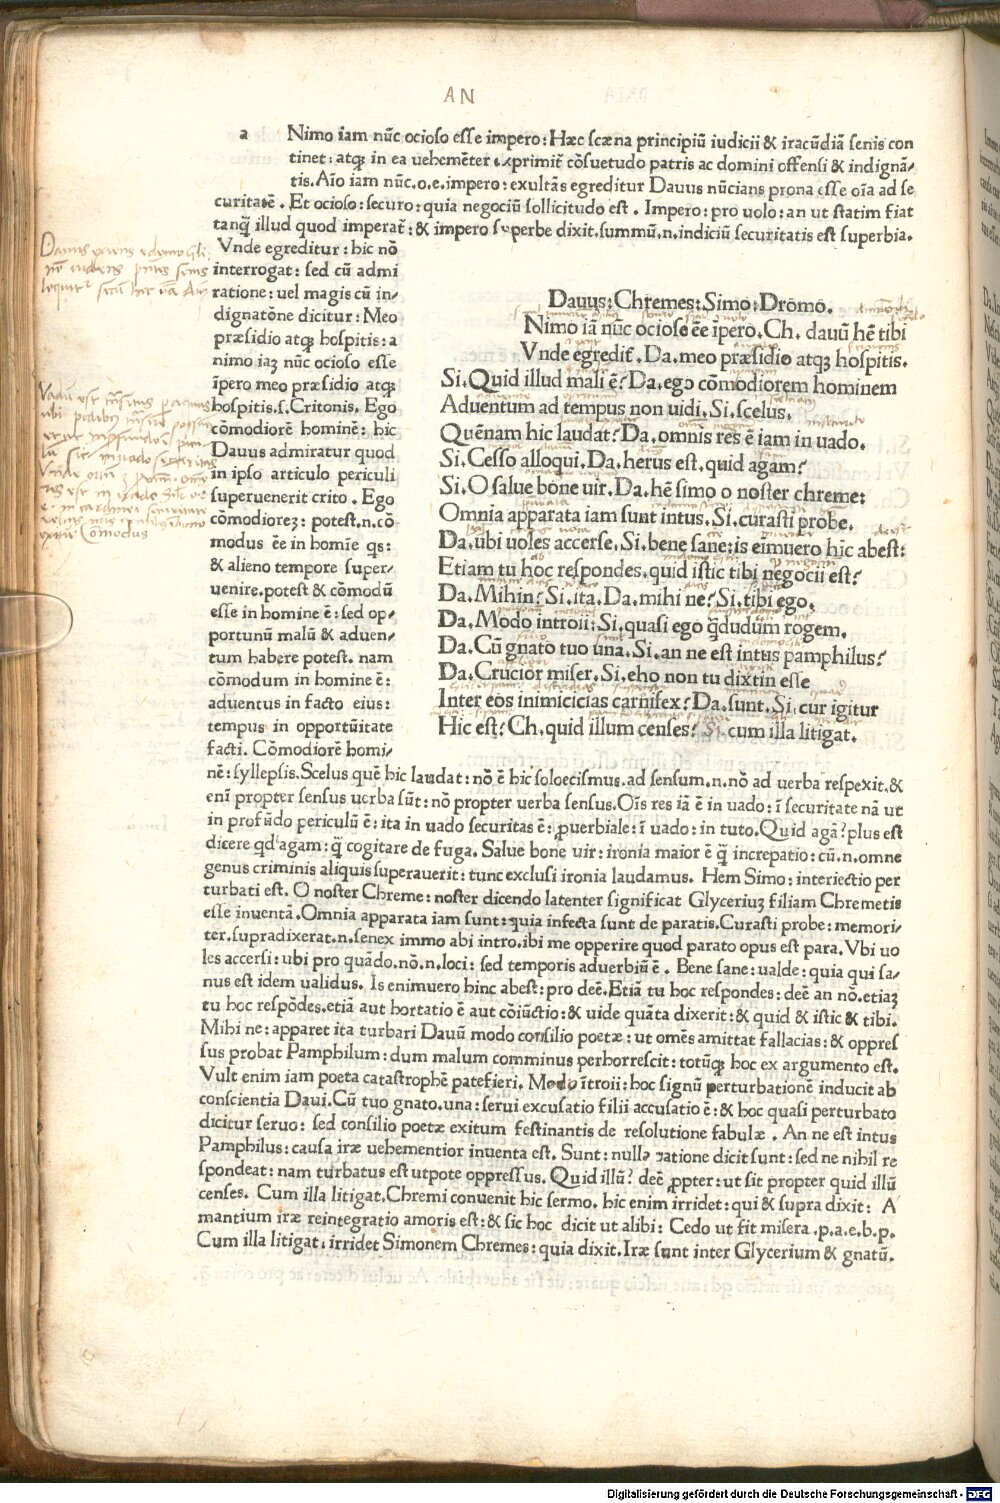 AN
a Nimo iam nūc ocioso esse impero: Hæc scæna principiū iudicii & iracūdiā senis con
tinet: atqꝫ in ea uehemēter exprimit̄ cōsuetudo patris ac domini offensi & indignā-
tis. Aīo iam nūc.o.e.impero: exultās egreditur Dauus nūcians prona esse oīa ad se
curitatē. Et ocioso: securo: quia negociū sollicitudo est. Impero: pro uolo: an ut statim fiat
tanq̄ illud quod imperat̄: & impero superbe dixit.summū.n.indiciū securitatis est superbia.
Vnde egreditur: hic nō
interrogat: sed cū admi
ratione: uel magis cū in-
dignatōne dicitur: Meo
præsidio atqꝫ hospitis: a
nimo iaꝫ nūc ocioso esse
īpero meo præsidio atqꝫ
hospitis.s.Critonis. Ego
cōmodiorē hominē: hic
Dauus admiratur quod
in ipso articulo periculi
superuenerit crito. Ego
cōmodioreꝫ: potest.n.cō-
modus ēe in homīe qs:
& alieno tempore super-
uenire.potest & cōmodū
esse in homine ē: sed op-
portunū malū & aduen-
tum habere potest. nam
cōmodum in homine ē:
aduentus in facto eius:
tempus in opportūitate
facti. Cōmodiorē homi-
Dauus: Chremes: Simo: Dromo.
Nimo iā nūc ocioso ēe īpero. Ch. dauū hē tibi
Vnde egredit̄. Da. meo præsidio atqꝫ hospitis.
Si. Quid illud mali ē? Da. ego cōmodiorem hominem
Aduentum ad tempus non uidi. Si. scelus.
Quēnam hic laudat? Da. omnis res ē iam in uado.
Si. Cesso alloqui. Da. herus est. quid agam?
Si. O salue bone uir. Da. hē simo o noster chreme:
Omnia apparata iam sunt intus. Si. curasti probe.
Da. ubi uoles accerse. Si. bene sane: is eimuero hīc abest:
Etiam tu hoc respondes. quid istic tibi negocii est?
Da. Mihin? Si. ita. Da. mihi ne? Si. tibi ego.
Da. Modo introii: Si. quasi ego q̄dudum rogem.
Da. Cū gnato tuo una. Si. an ne est intus pamphilus?
Da. Crucior miser. Si. eho non tu dixtin esse
Inter eos inimicicias carnifex? Da. sunt. Si. cur igitur
Hic est? Ch. quid illum censes? Si. cum illa litigat.
nē: syllepsis. Scelus quē hic laudat: nō ē hic soloecismus.ad sensum.n.nō ad uerba respexit.&
enī propter sensus uerba sūt: nō propter uerba sensus. Oīs res iā ē in uado: ī securitate nā ut
in profūdo periculū ē: ita in uado securitas ē: ꝓuerbiale: ī uado: in tuto. Quid agā? plus est
dicere qd' agam: q̄ cogitare de fuga. Salue bone uir: ironia maior ē q̄ increpatio: cū.n.omne
genus criminis aliquis superauerit: tunc exclusi ironia laudamus. Hem Simo: interiectio per
turbati est. O noster Chreme: noster dicendo latenter significat Glyceriuꝫ filiam Chremetis
esse inuentā. Omnia apparata iam sunt: quia infecta sunt de paratis. Curasti probe: memori-
ter.supradixerat.n.senex immo abi intro.ibi me opperire quod parato opus est para. Vbi uo
les accersi: ubi pro quādo.nō.n.loci: sed temporis aduerbiū ē. Bene sane: ualde: quia qui sa-
nus est idem ualidus. Is enimuero hinc abest: pro deē. Etiā tu hoc respondes: deē an nō.etiaꝫ
tu hoc respōdes.etiā aut hortatio ē aut cōiūctio: & uide quāta dixerit: & quid & istic & tibi.
Mihi ne: apparet ita turbari Dauū modo consilio poetæ: ut omēs amittat fallacias: & oppres
sus probat Pamphilum: dum malum comminus perhorrescit: totūqꝫ hoc ex argumento est.
Vult enim iam poeta catastrophē patefieri. Modo ītroii: hoc signū perturbationē inducit ab
conscientia Daui. Cū tuo gnato.una: serui excusatio filii accusatio ē: & hoc quasi perturbato
dicitur seruo: sed consilio poetæ exitum festinantis de resolutione fabulæ. An ne est intus
Pamphilus: causa iræ uehementior inuenta est. Sunt: nulla ratione dicit sunt: sed ne nihil re
spondeat: nam turbatus est utpote oppressus. Quid illū? deē ꝓpter: ut sit propter quid illū
censes. Cum illa litigat. Chremi conuenit hic sermo. hic enim irridet: qui & supra dixit: A
mantium iræ reintegratio amoris est: & sic hoc dicit ut alibi: Cedo ut fit misera.p.a.e.b.p.
Cum illa litigat: irridet Simonem Chremes: quia dixit. Iræ sunt inter Glycerium & gnatū.
Digitalisierung gefördert durch die Deutsche Forschungsgemeinschaft - DFG